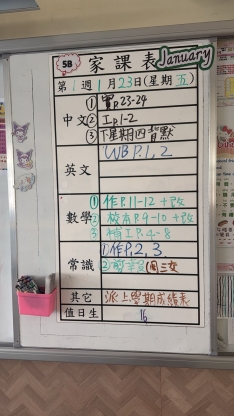 5B 家課表 January
第1週1月23日(星期五)
中文 ①實P.23-24
②工p1-2
③下星期四背默
英文 WB P.1, 2
數學 ①作P.11-12+改
②校本P.9-10+改
③補工P.4-8
常識 ①作P.2, 3
②剪
其它 派上學期成績表
值日生 16